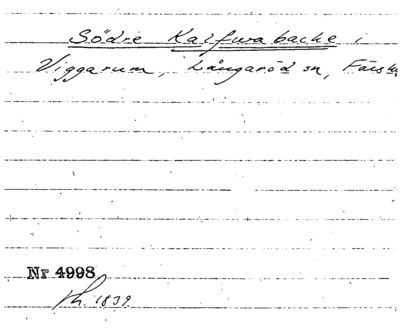 Södre Kalfwabacke i
Viggarum, Långaröd sn, Färs
Nr 4998
1839